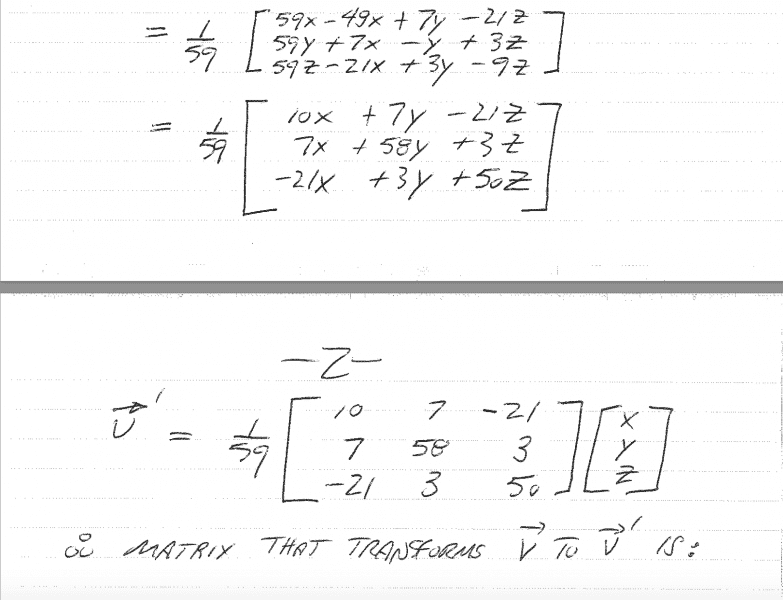 = 1/59 [ 59x - 49x + 7y - 21z
59y + 7x - y + 3z
59z - 21x + 3y - 9z ]
= 1/59 [ 10x + 7y - 21z
7x + 58y + 3z
-21x + 3y + 50z ]
-2-
v⃗' = 1/59 [ 10 7 -21 ] [ x ]
[ 7 58 3 ] [ y ]
[ -21 3 50 ] [ z ]
∴ MATRIX THAT TRANSFORMS v⃗ TO v⃗' IS: